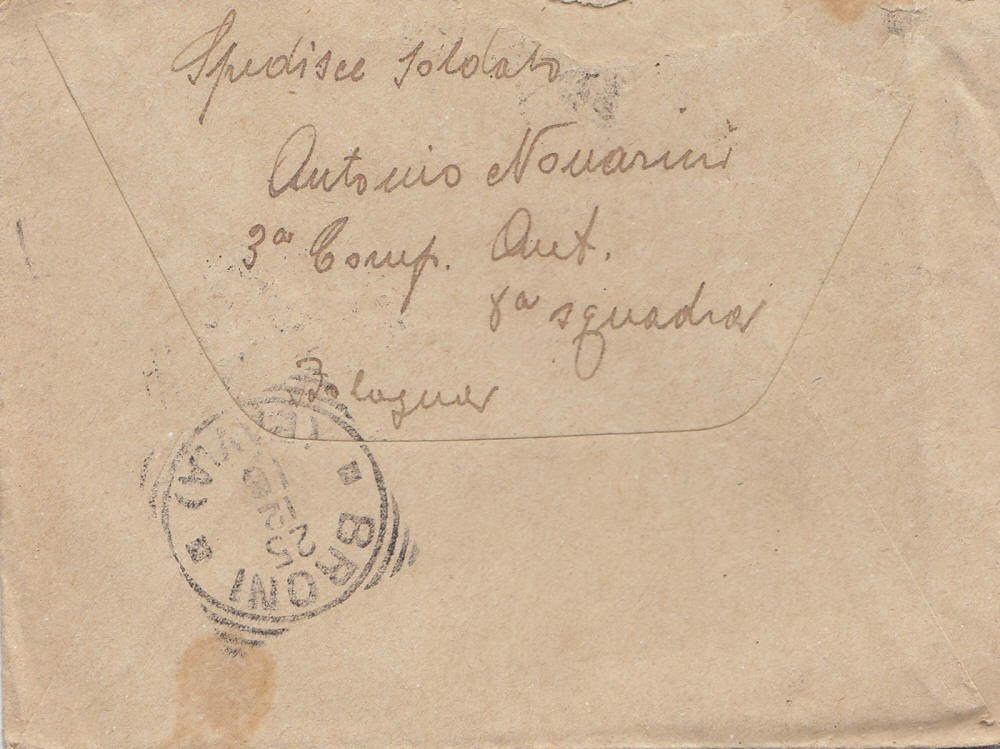 Spedisce soldato
Antonio Novarini
3ª Comp. Aut.
8ª squadra
Bologna
BRONI
(PAVIA)